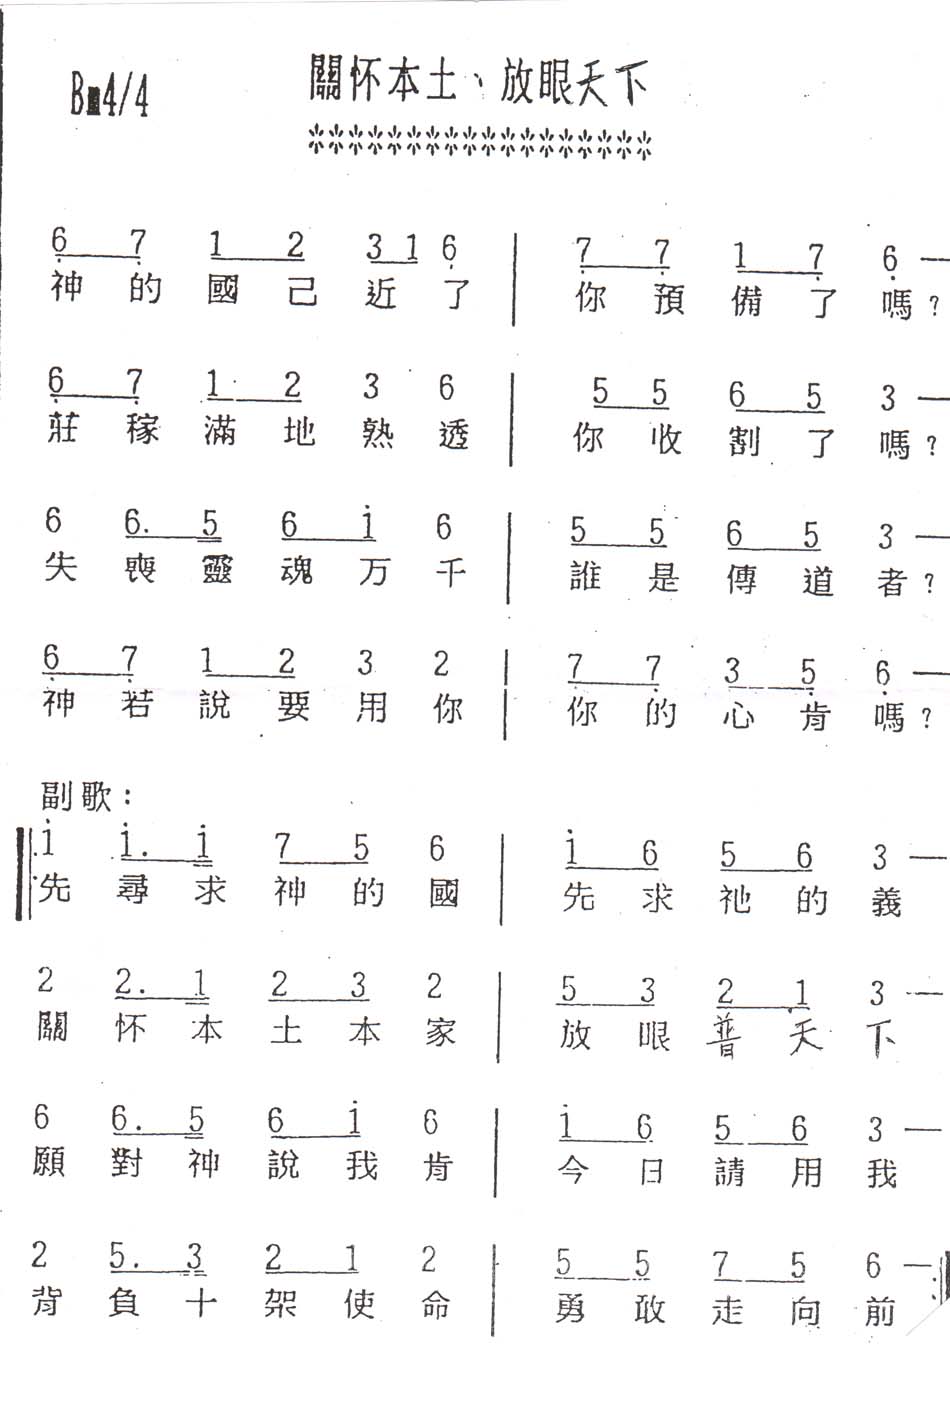 關怀本土、放眼天下
Bm4/4
6 7 1 2 3 1 6 | 7 7 1 7 6 —
神的國己近了 你預備了嗎?
6 7 1 2 3 6 | 5 5 6 5 3 —
莊稼滿地熟透 你收割了嗎?
6 6. 5 6 i 6 | 5 5 6 5 3 —
失喪靈魂万千 誰是傳道者?
6 7 1 2 3 2 | 7 7 3 5 6 —
神若說要用你 你的心肯嗎?
副歌:
i i. i 7 5 6 | i 6 5 6 3 —
先尋求神的國 先求祂的義
2 2. 1 2 3 2 | 5 3 2 1 3 —
關怀本土本家 放眼普天下
6 6. 5 6 i 6 | i 6 5 6 3 —
願對神說我肯 今日請用我
2 5. 3 2 1 2 | 5 5 7 5 6 —
背負十架使命 勇敢走向前